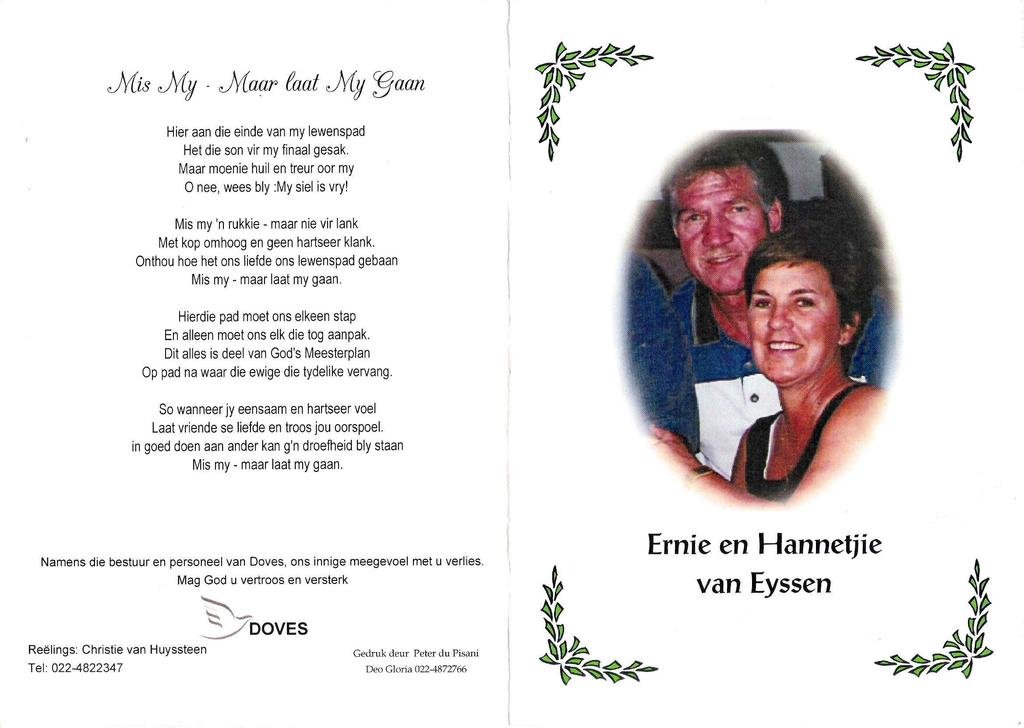 Mis My - Maar laat My Gaan
Hier aan die einde van my lewenspad
Het die son vir my finaal gesak.
Maar moenie huil en treur oor my
O nee, wees bly :My siel is vry!
Mis my 'n rukkie - maar nie vir lank
Met kop omhoog en geen hartseer klank.
Onthou hoe het ons liefde ons lewenspad gebaan
Mis my - maar laat my gaan.
Hierdie pad moet ons elkeen stap
En alleen moet ons elk die tog aanpak.
Dit alles is deel van God's Meesterplan
Op pad na waar die ewige die tydelike vervang.
So wanneer jy eensaam en hartseer voel
Laat vriende se liefde en troos jou oorspoel.
in goed doen aan ander kan g'n droefheid bly staan
Mis my - maar laat my gaan.
Namens die bestuur en personeel van Doves, ons innige meegevoel met u verlies.
Mag God u vertroos en versterk
DOVES
Reëlings: Christie van Huyssteen
Tel: 022-4822347
Gedruk deur Peter du Pisani
Deo Gloria 022-4872766
Ernie en Hannetjie
van Eyssen